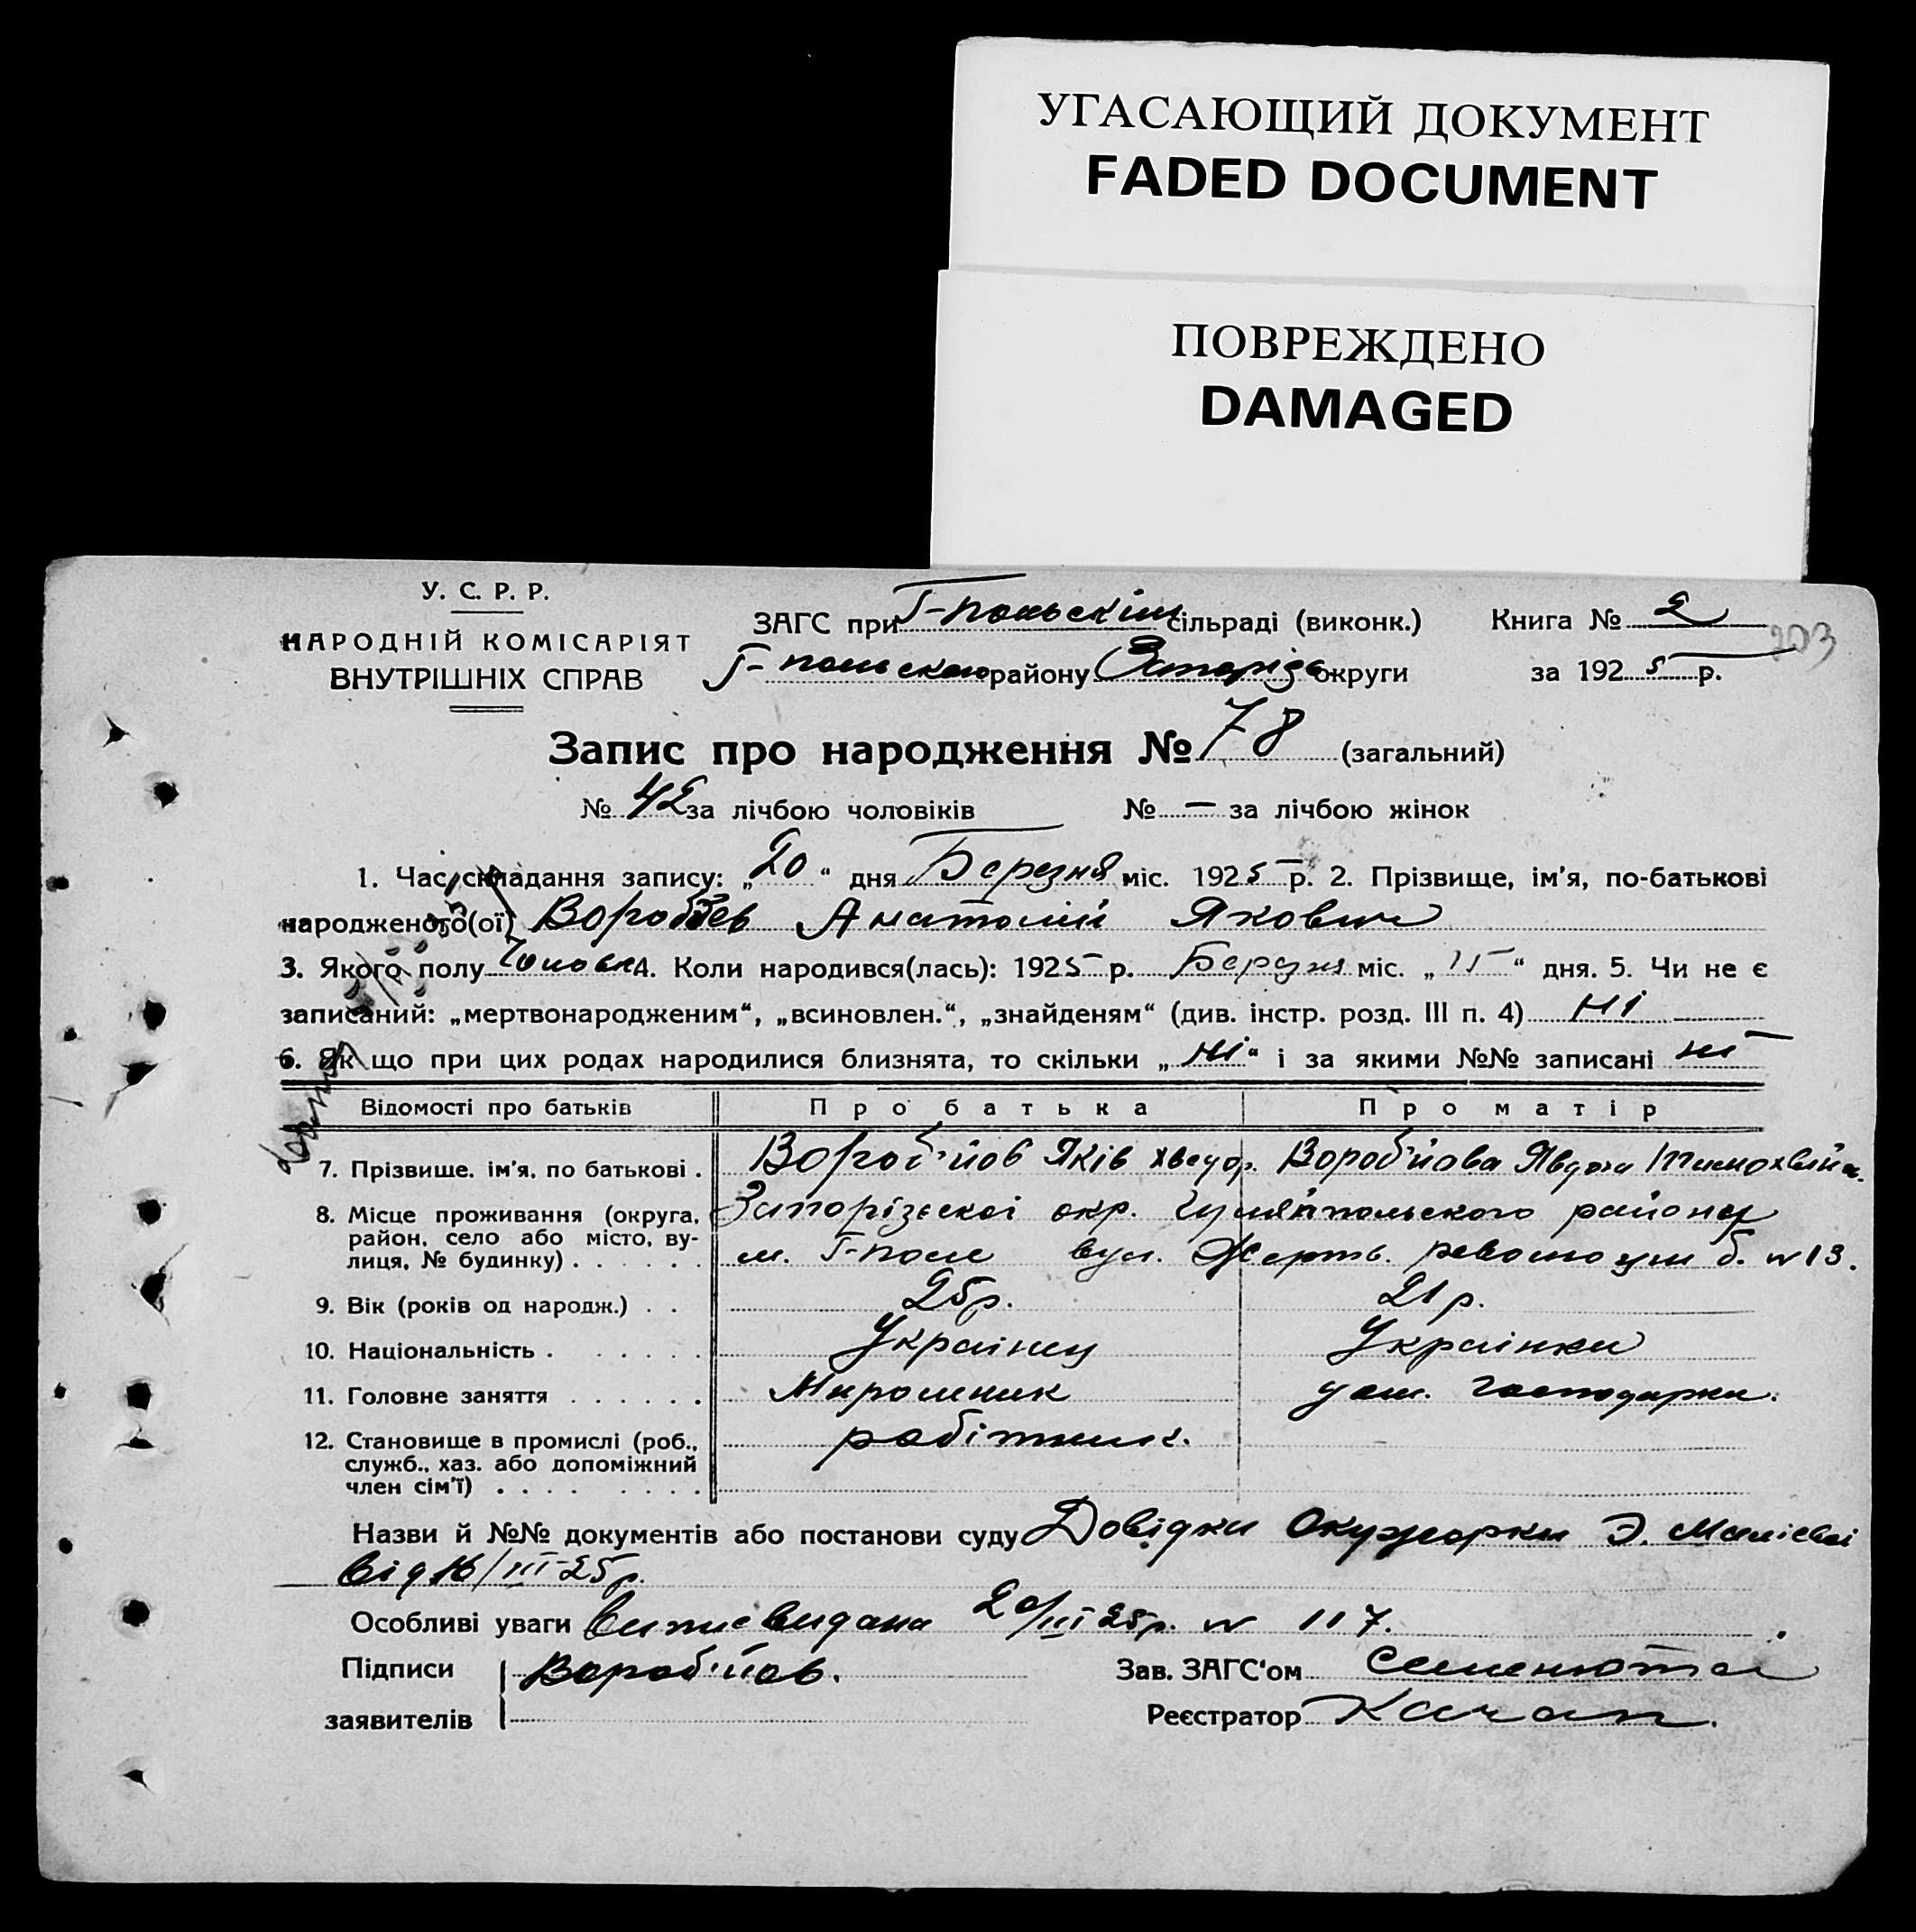 УГАСАЮЩИЙ ДОКУМЕНТ
FADED DOCUMENT
ПОВРЕЖДЕНО
DAMAGED
У. С. Р. Р.
НАРОДНІЙ КОМІСАРІЯТ
ВНУТРІШНІХ СПРАВ
ЗАГС при Г-польскім сільраді (виконк.)
Г-польского району Запоріз. округи
Книга № 2
203
за 1925 р.
Запис про народження № 78 (загальний)
№ 42 за лічбою чоловіків № — за лічбою жінок
1. Час складання запису: „20“ дня Березня міс. 1925 р. 2. Прізвище, ім’я, по-батькові
народженого(ої) Воробйев Анатолий Якович
3. Якого полу Чоловіч. 4. Коли народився(лась): 1925 р. Березня міс. „15“ дня. 5. Чи не є
записаний: „мертвонародженим“, „всиновлен.“, „знайденям“ (див. інстр. розд. III п. 4) ні
6. Як що при цих родах народилися близнята, то скільки „ні“ і за якими №№ записані ні
Відомості про батьків Про батька Про матір
7. Прізвище, ім’я, по батькові . Вороб'йов Яків Хведор. Вороб'йова Явдоха Тимохвіївна.
8. Місце проживання (округа, Запорізької окр. Гуляйпольского району
район, село або місто, ву-
лиця, № будинку) . . . . . . м. Г-поле вул. Жертв. революции б. № 13.
9. Вік (років од народж.) . . 25 р. 21 р.
10. Національність . . . . . . Українец Українка
11. Головне заняття . . . . . . Мирошник дом. господарка.
12. Становище в промислі (роб., робітник.
служб., хаз. або допоміжний
член сім’ї) . . . . . . . .
Назви й №№ документів або постанови суду Довідки Окушорки Э.
від 16/III-25 р.
Особливі уваги Випис видана 20/III 25 р. № 117.
Підписи Вороб'йов. Зав. ЗАГС’ом Семенюта
заявителів Реєстратор Качан.